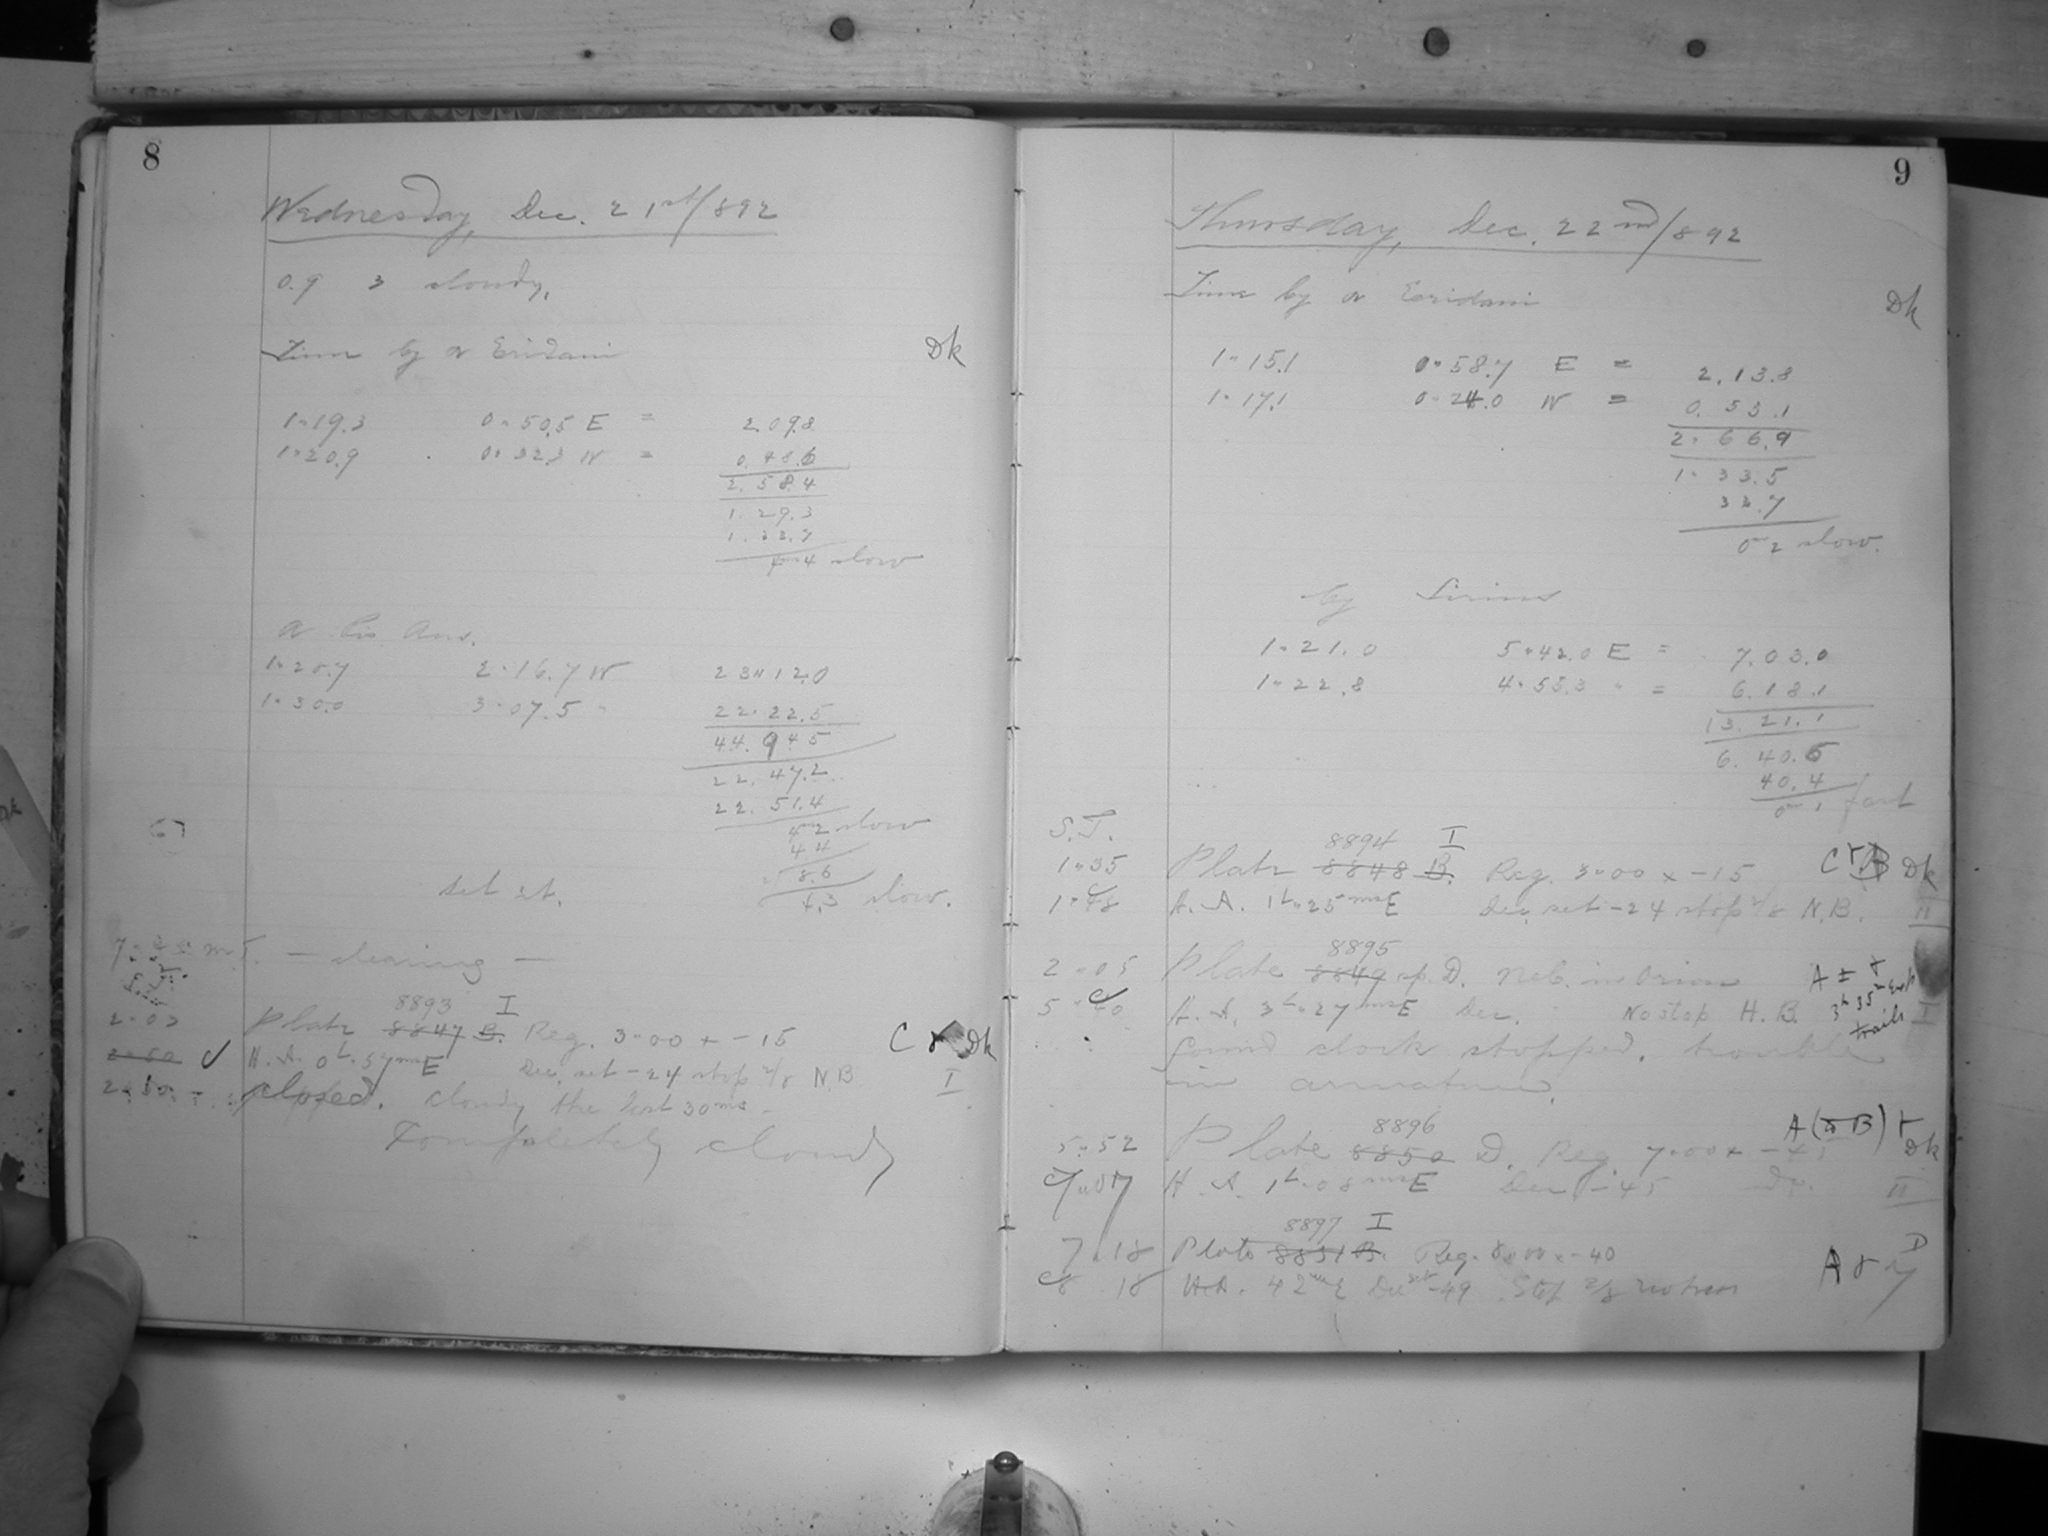 8
Wednesday, Dec. 21st/892
0.9 3 cloudy,
Time by α Eridani Dk
1 19.3 0 50.5 E = 2.09.8
1 20.9 0 32.3 W = 0.48.6
2.58.4
1.29.3
1.33.7
4m4 slow
α Pis Aus.
1 28.7 2 16.7 W 23 12.0
1 30.0 3 07.5 " 22 22.5
44.94.5
22.47.2
22.51.4
4m2 slow
44
8.6
set st. 4.3 slow.
m.T. — clearing —
8893 I
2 03 Plate 8847 B. Reg. 3 00 × -15 C r Dk
2 50 H. A. 0h 57ms E Dec. set -24 stop 7/8 N.B I
2 50 closed. cloudy the last 30ms.
Completely cloudy
9
Thursday, Dec. 22nd/892
Time by α Eridani Dk
1 15.1 0 58.7 E = 2.13.8
1 17.1 0 24.0 W = 0.53.1
2 66.9
1 33.5
33.7
0m2 slow.
by Sirius
1 21.0 5 42.0 E = 7.03.0
1 22.8 4 55.3 " = 6.18.1
13.21.1
6.40.5
40.4
0m1 fast
S.T.
8894 I
1 35 Plate 8848 B. Reg. 3 00 × -15 C r Dk
1 48 H. A. 1h 25ms E Dec. set -24 stop 7/8 N.B. II
8895
2 05 Plate 8849 sp. D. Neb. in Orion A ± r
5 40 H. A. 3h 27ms E Dec. No stop H.B. 3h 35m Exp I
trails
found clock stopped, trouble
in armature.
8896 A (to B) r
5 52 Plate 8850 D. Reg. 7 00 × -45 Dk
7 07 H. A. 1h 08ms E Dec -45 do. II
8897 I
7 18 Plate 8851 B. Reg. 8 00 × -40 D
8 18 H.A. 42ms E Dec set -49 Stop 7/8 A r